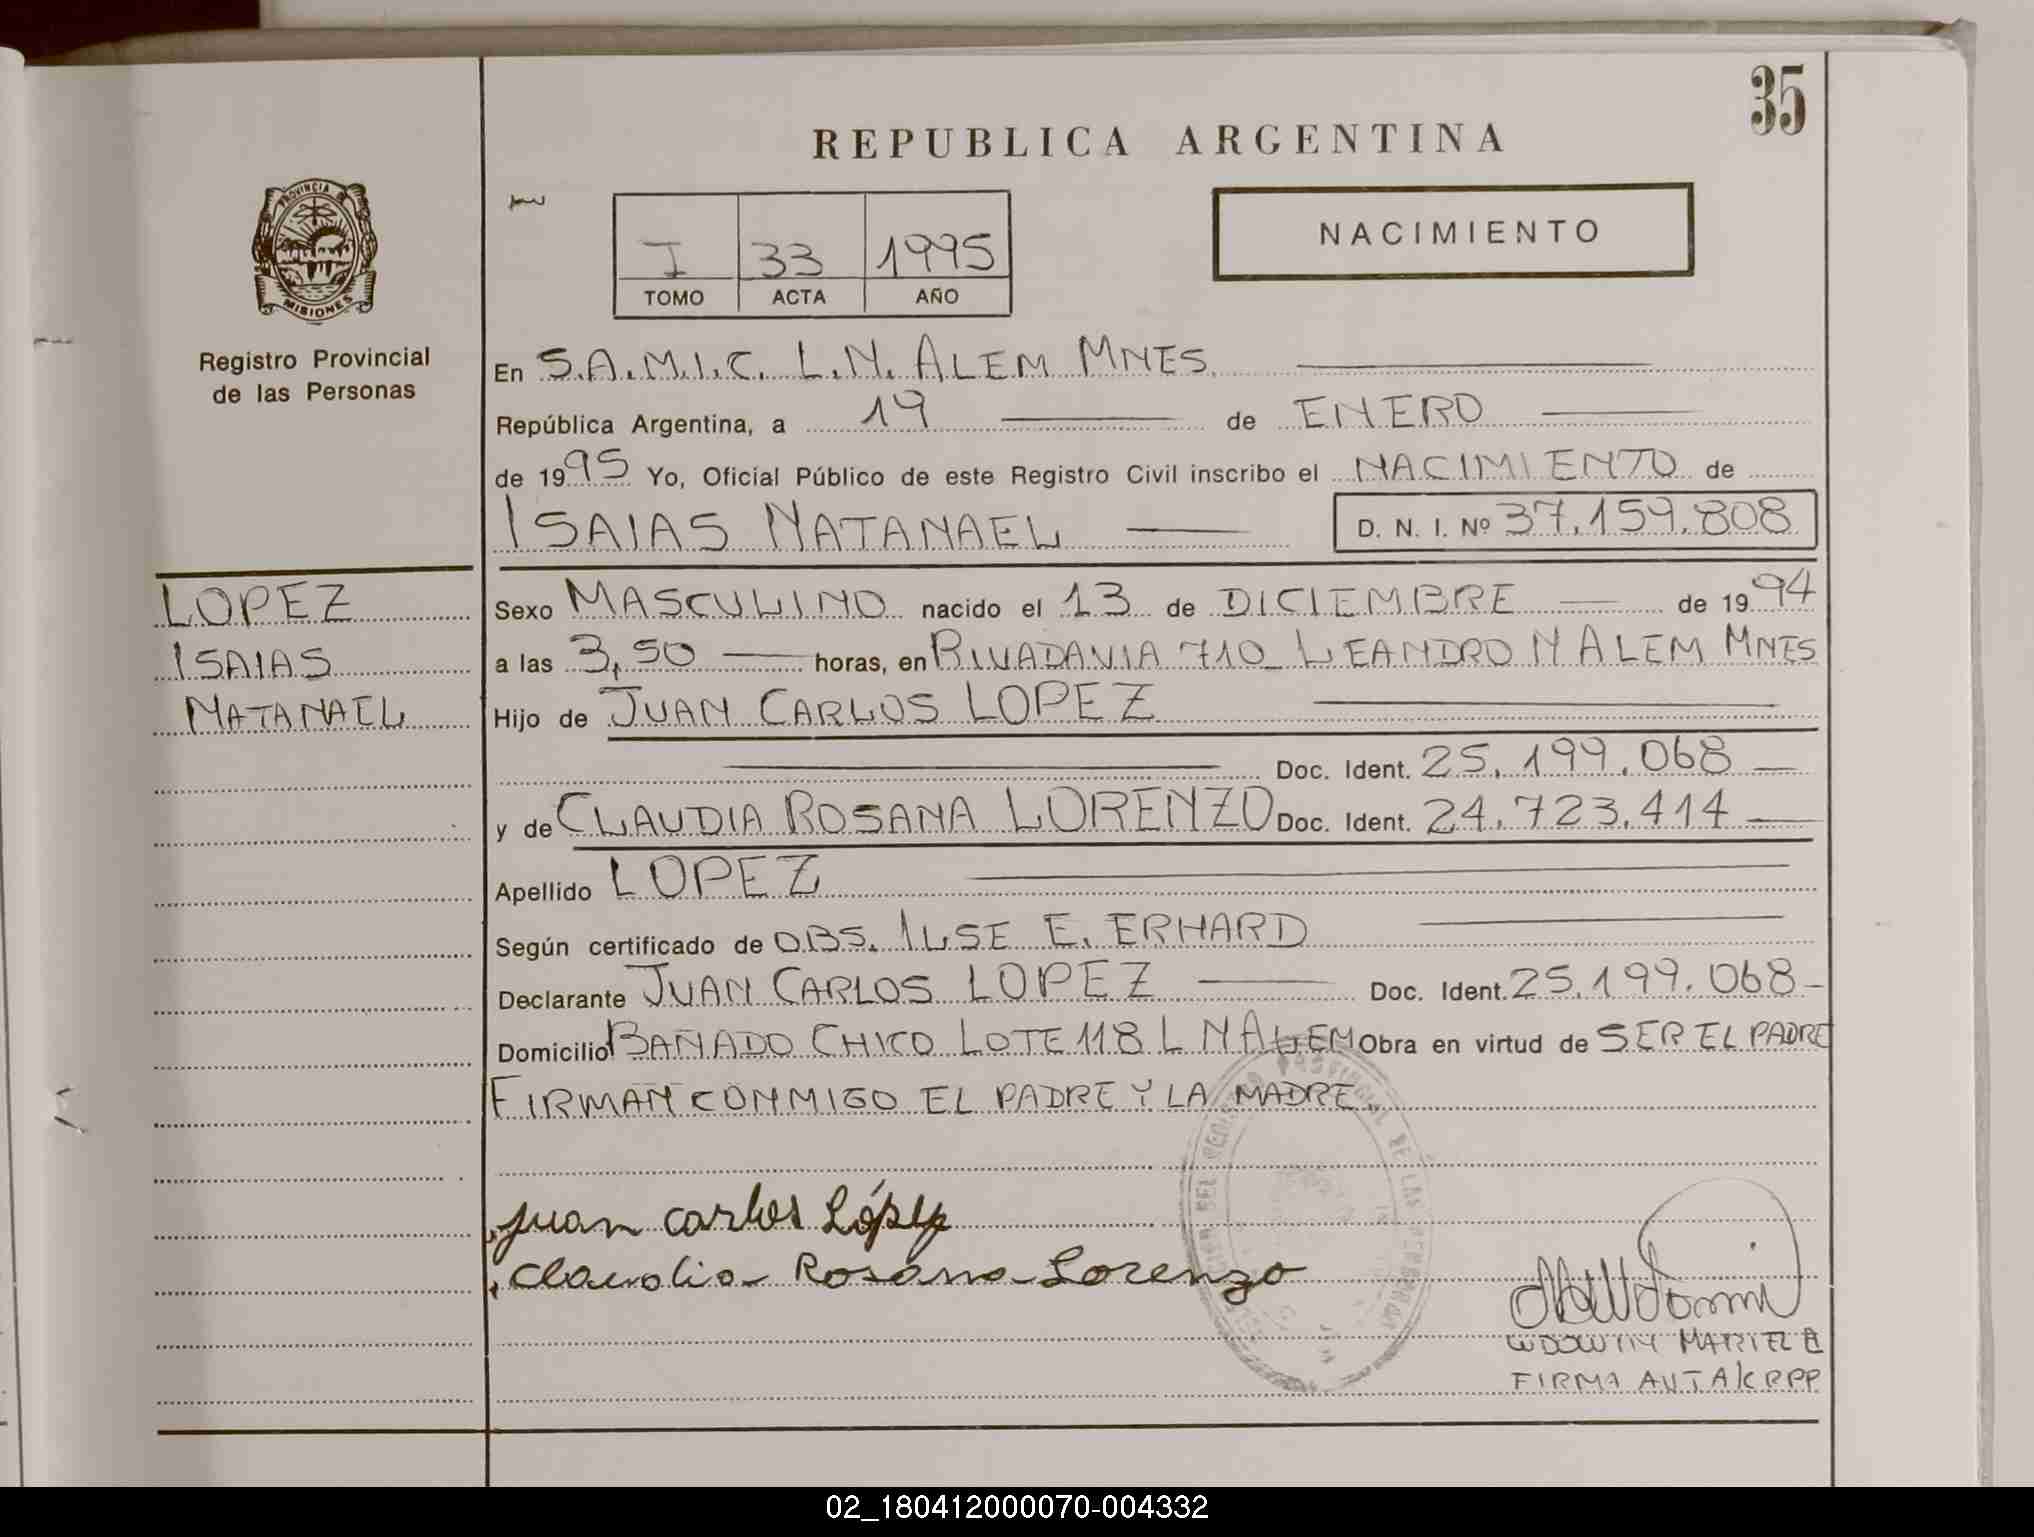 35
REPUBLICA ARGENTINA
PROVINCIA DE
MISIONES
Registro Provincial
de las Personas
I 33 1995
TOMO ACTA AÑO
NACIMIENTO
En S.A.M.I.C. L.N. ALEM MNES.
República Argentina, a 19 de ENERO
de 1995 Yo, Oficial Público de este Registro Civil inscribo el NACIMIENTO de
ISAIAS NATANAEL D. N. I. Nº 37.159.808
LOPEZ
ISAIAS
NATANAEL
Sexo MASCULINO nacido el 13 de DICIEMBRE de 1994
a las 3,50 horas, en RIVADAVIA 710_ LEANDRO N ALEM MNES
Hijo de JUAN CARLOS LOPEZ
Doc. Ident. 25.199.068
y de CLAUDIA ROSANA LORENZO Doc. Ident. 24.723.414
Apellido LOPEZ
Según certificado de OBS. ILSE E. ERHARD
Declarante JUAN CARLOS LOPEZ Doc. Ident. 25.199.068
Domicilio BAÑADO CHICO LOTE 118 L N ALEM Obra en virtud de SER EL PADRE
FIRMAN CONMIGO EL PADRE Y LA MADRE.
Juan Carlos López
Claudia Rosana Lorenzo
MARIEL
FIRMA AUT A/C RPP
02_180412000070-004332